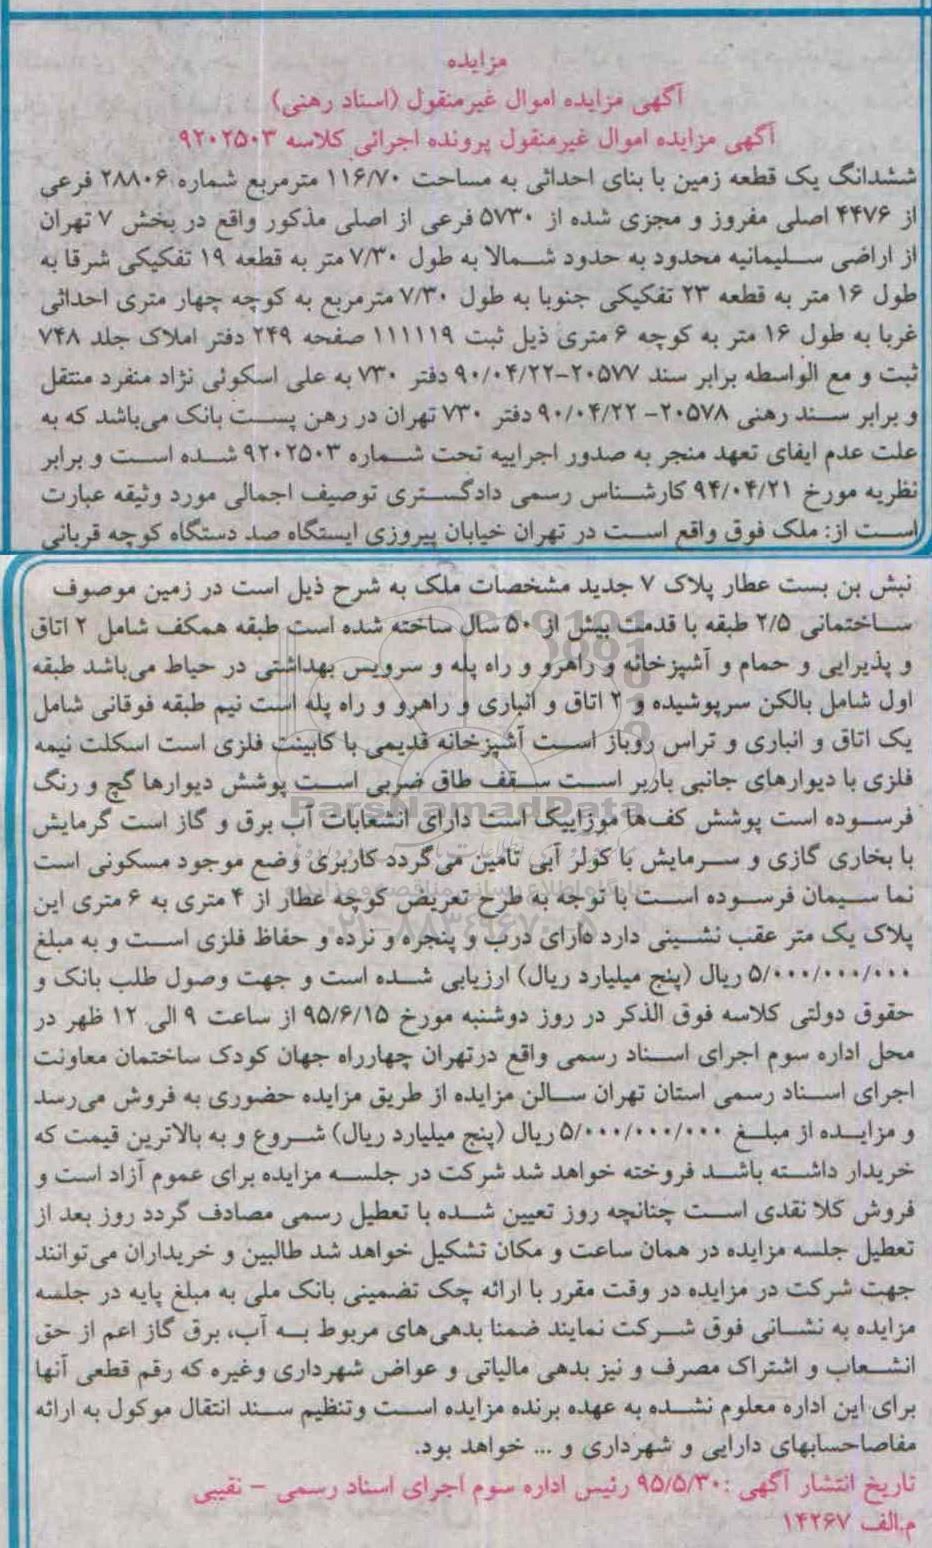 مزایده
آگهی مزایده اموال غیرمنقول (اسناد رهنی)
آگهی مزایده اموال غیرمنقول پرونده اجرائی کلاسه ۹۲۰۲۵۰۳
ششدانگ یک قطعه زمین با بنای احداثی به مساحت ۱۱۶/۷۰ مترمربع شماره ۲۸۸۰۶ فرعی
از ۴۴۷۶ اصلی مفروز و مجزی شده از ۵۷۳۰ فرعی از اصلی مذکور واقع در بخش ۷ تهران
از اراضی سلیمانیه محدود به حدود شمالا به طول ۷/۳۰ متر به قطعه ۱۹ تفکیکی شرقا به
طول ۱۶ متر به قطعه ۲۳ تفکیکی جنوبا به طول ۷/۳۰ مترمربع به کوچه چهار متری احداثی
غربا به طول ۱۶ متر به کوچه ۶ متری ذیل ثبت ۱۱۱۱۱۹ صفحه ۲۴۹ دفتر املاک جلد ۷۴۸
ثبت و مع الواسطه برابر سند ۲۰۵۷۷-۹۰/۰۴/۲۲ دفتر ۷۳۰ به علی اسکوئی نژاد منفرد منتقل
و برابر سند رهنی ۲۰۵۷۸- ۹۰/۰۴/۲۲ دفتر ۷۳۰ تهران در رهن پست بانک می‌باشد که به
علت عدم ایفای تعهد منجر به صدور اجراییه تحت شماره ۹۲۰۲۵۰۳ شده است و برابر
نظریه مورخ ۹۴/۰۴/۲۱ کارشناس رسمی دادگستری توصیف اجمالی مورد وثیقه عبارت
است از: ملک فوق واقع است در تهران خیابان پیروزی ایستگاه صد دستگاه کوچه قربانی
نبش بن بست عطار پلاک ۷ جدید مشخصات ملک به شرح ذیل است در زمین موصوف
ساختمانی ۲/۵ طبقه با قدمت بیش از ۵۰ سال ساخته شده است طبقه همکف شامل ۲ اتاق
و پذیرایی و حمام و آشپزخانه و راهرو و راه پله و سرویس بهداشتی در حیاط می‌باشد طبقه
اول شامل بالکن سرپوشیده و ۲ اتاق و انباری و راهرو و راه پله است نیم طبقه فوقانی شامل
یک اتاق و انباری و تراس روباز است آشپزخانه قدیمی با کابینت فلزی است اسکلت نیمه
فلزی با دیوارهای جانبی باربر است سقف طاق ضربی است پوشش دیوارها گچ و رنگ
فرسوده است پوشش کف‌ها موزاییک است دارای انشعابات آب برق و گاز است گرمایش
با بخاری گازی و سرمایش با کولر آبی تامین می‌گردد کاربری وضع موجود مسکونی است
نما سیمان فرسوده است با توجه به طرح تعریض کوچه عطار از ۴ متری به ۶ متری این
پلاک یک متر عقب نشینی دارد دارای درب و پنجره و نرده و حفاظ فلزی است و به مبلغ
۵/۰۰۰/۰۰۰/۰۰۰ ریال (پنج میلیارد ریال) ارزیابی شده است و جهت وصول طلب بانک و
حقوق دولتی کلاسه فوق الذکر در روز دوشنبه مورخ ۹۵/۶/۱۵ از ساعت ۹ الی ۱۲ ظهر در
محل اداره سوم اجرای اسناد رسمی واقع درتهران چهارراه جهان کودک ساختمان معاونت
اجرای اسناد رسمی استان تهران سالن مزایده از طریق مزایده حضوری به فروش می‌رسد
و مزایده از مبلغ ۵/۰۰۰/۰۰۰/۰۰۰ ریال (پنج میلیارد ریال) شروع و به بالاترین قیمت که
خریدار داشته باشد فروخته خواهد شد شرکت در جلسه مزایده برای عموم آزاد است و
فروش کلا نقدی است چنانچه روز تعیین شده با تعطیل رسمی مصادف گردد روز بعد از
تعطیل جلسه مزایده در همان ساعت و مکان تشکیل خواهد شد طالبین و خریداران می‌توانند
جهت شرکت در مزایده در وقت مقرر با ارائه چک تضمینی بانک ملی به مبلغ پایه در جلسه
مزایده به نشانی فوق شرکت نمایند ضمنا بدهی‌های مربوط به آب، برق گاز اعم از حق
انشعاب و اشتراک مصرف و نیز بدهی مالیاتی و عوارض شهرداری وغیره که رقم قطعی آنها
برای این اداره معلوم نشده به عهده برنده مزایده است وتنظیم سند انتقال موکول به ارائه
مفاصاحسابهای دارایی و شهرداری و ... خواهد بود.
تاریخ انتشار آگهی :۹۵/۵/۳۰ رئیس اداره سوم اجرای اسناد رسمی - نقیبی
م.الف ۱۴۲۶۷
ParsNamadData
۰۲۱-۸۸۳۴۹۶۷۰-۵